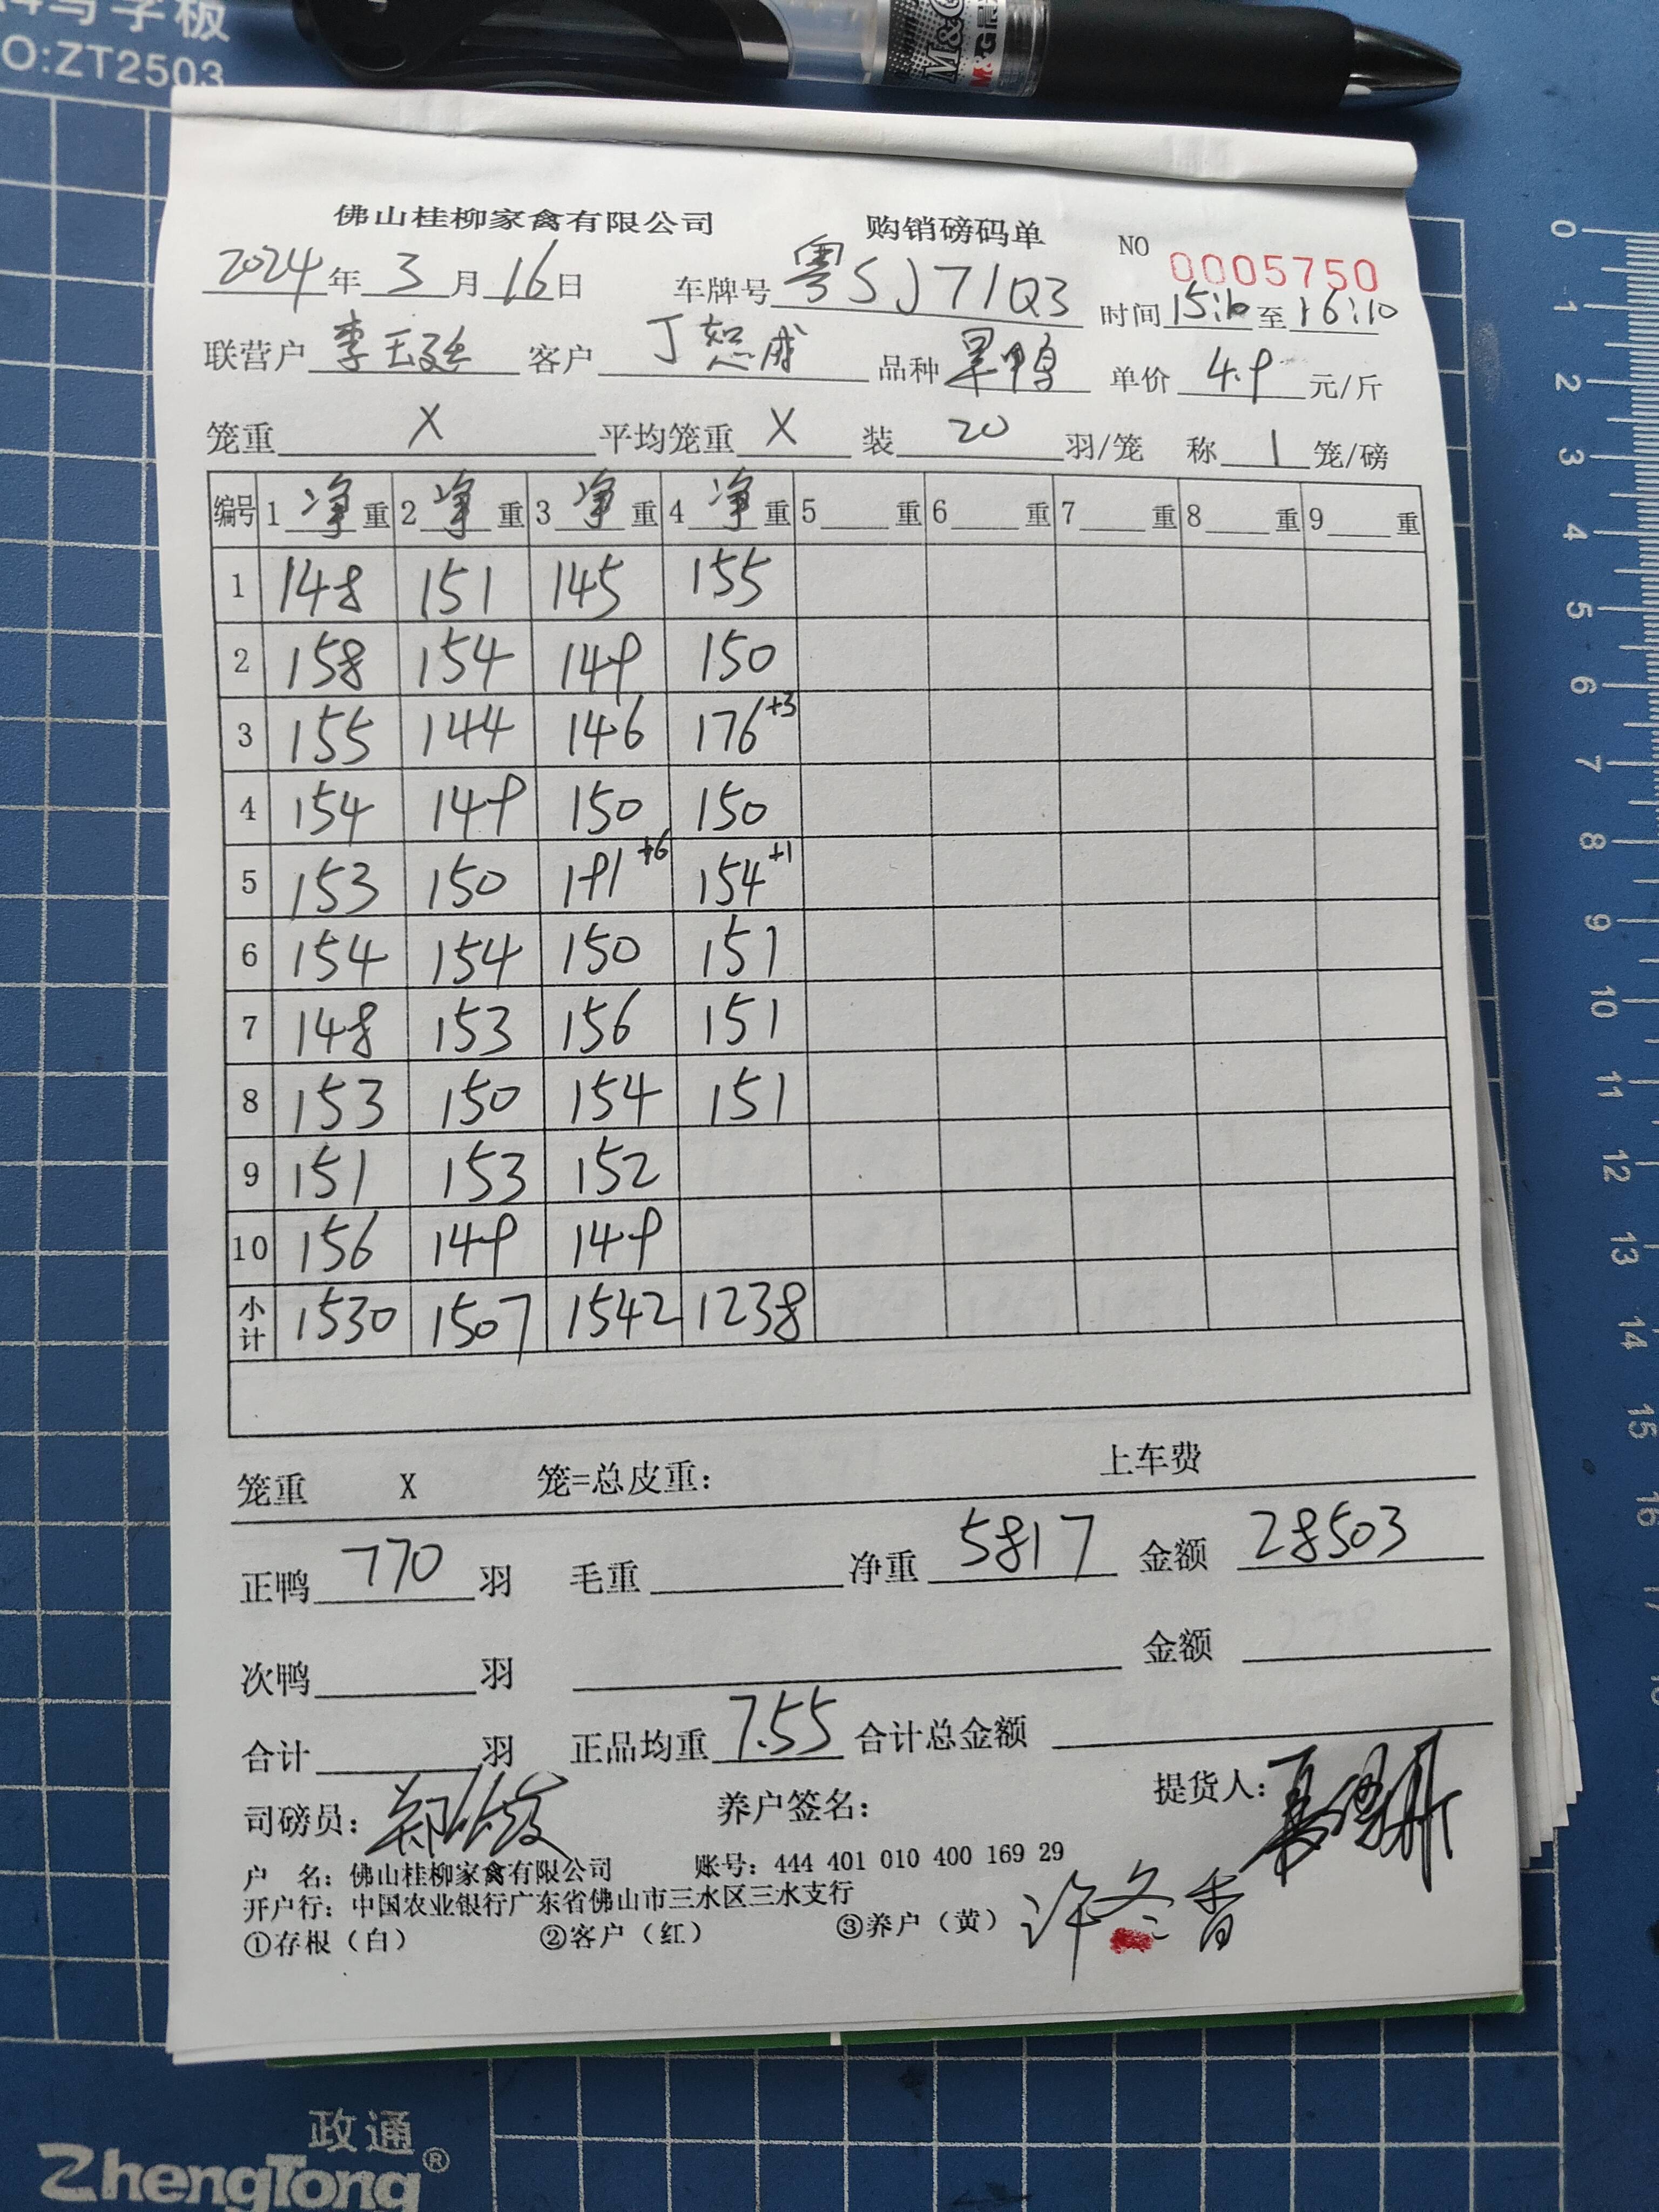 写字板
O:ZT2503
M&G
M&G晨
佛山桂柳家禽有限公司 购销磅码单 NO 0005750
2024年3月16日 车牌号粤SJ71Q3 时间15:10至16:10
联营户李玉廷 客户丁恕成 品种旱鸭 单价4.9元/斤
笼重X平均笼重X装20羽/笼 称1笼/磅
编号 1净重 2净重 3净重 4净重 5重 6重 7重 8重 9重
1 148 151 145 155
2 158 154 149 150
3 155 144 146 176+3
4 154 149 150 150
5 153 150 191+6 154+1
6 154 154 150 151
7 148 153 156 151
8 153 150 154 151
9 151 153 152
10 156 149 149
小计 1530 1507 1542 1238
笼重 X 笼=总皮重: 上车费
正鸭770羽 毛重 净重5817 金额28503
次鸭 羽 金额
合计 羽 正品均重7.55合计总金额
司磅员: 养户签名: 提货人:
户 名: 佛山桂柳家禽有限公司 账号: 444 401 010 400 169 29
开户行: 中国农业银行广东省佛山市三水区三水支行
①存根（白） ②客户（红） ③养户（黄） 许冬香
0 1 2 3 4 5 6 7 8 9 10 11 12 13 14 15 16 17
政通
ZhengTong®